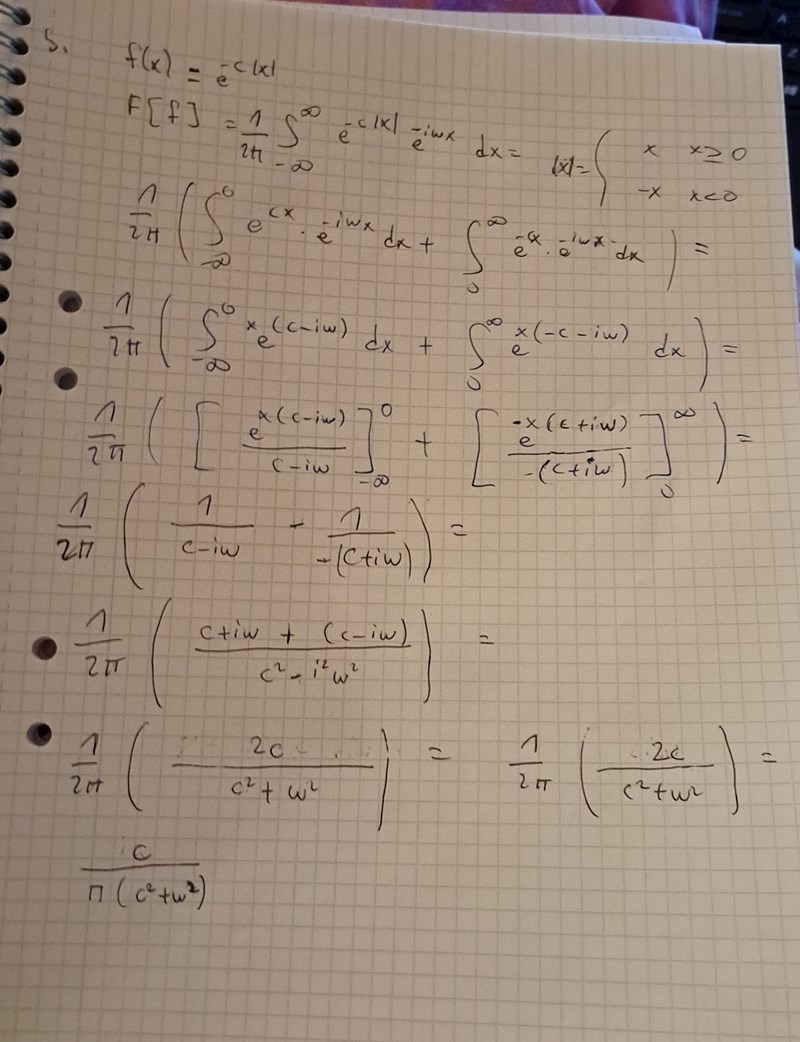 5. f(x) = e^{-c|x|}
F[f] = \frac{1}{2π} ∫_{-∞}^{∞} e^{-c|x|} e^{-iwx} dx = |x| = { x x ≥ 0
-x x < 0
\frac{1}{2π} ( ∫_{-∞}^{0} e^{cx} · e^{-iwx} dx + ∫_{0}^{∞} e^{-cx} · e^{-iwx} dx ) =
\frac{1}{2π} ( ∫_{-∞}^{0} e^{x(c-iw)} dx + ∫_{0}^{∞} e^{x(-c-iw)} dx ) =
\frac{1}{2π} ( [ \frac{e^{x(c-iw)}}{c-iw} ]_{-∞}^{0} + [ \frac{e^{-x(c+iw)}}{-(c+iw)} ]_{0}^{∞} ) =
\frac{1}{2π} ( \frac{1}{c-iw} - \frac{1}{-(c+iw)} ) =
\frac{1}{2π} ( \frac{c+iw + (c-iw)}{c^2 - i^2w^2} ) =
\frac{1}{2π} ( \frac{2c}{c^2+w^2} ) = \frac{1}{2π} ( \frac{2c}{c^2+w^2} ) =
\frac{c}{π(c^2+w^2)}